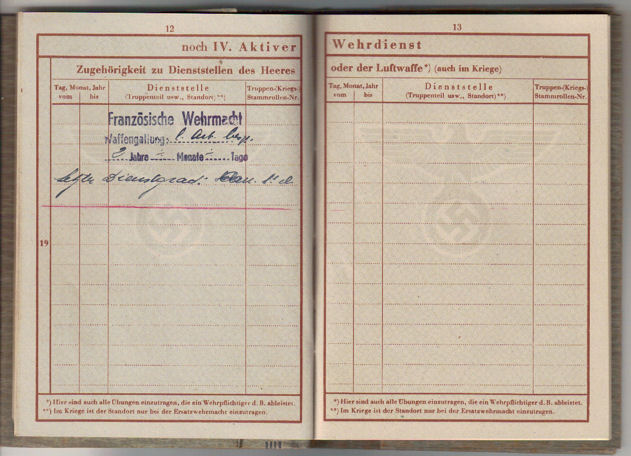 12
noch IV. Aktiver
Zugehörigkeit zu Dienststellen des Heeres
Tag, Monat, Jahr
vom bis
Dienststelle
(Truppenteil usw., Standort)**)
Truppen-(Kriegs-)
Stammrollen-Nr.
Französische Wehrmacht
Waffengattung:
2 Jahre Monate Tage
Dienstgrad:
19
*) Hier sind auch alle Übungen einzutragen, die ein Wehrpflichtiger d. B. ableistet.
**) Im Kriege ist der Standort nur bei der Ersatzwehrmacht einzutragen.
13
Wehrdienst
oder der Luftwaffe*) (auch im Kriege)
Tag, Monat, Jahr
vom bis
Dienststelle
(Truppenteil usw., Standort)**)
Truppen-(Kriegs-)
Stammrollen-Nr.
*) Hier sind auch alle Übungen einzutragen, die ein Wehrpflichtiger d. B. ableistet.
**) Im Kriege ist der Standort nur bei der Ersatzwehrmacht einzutragen.